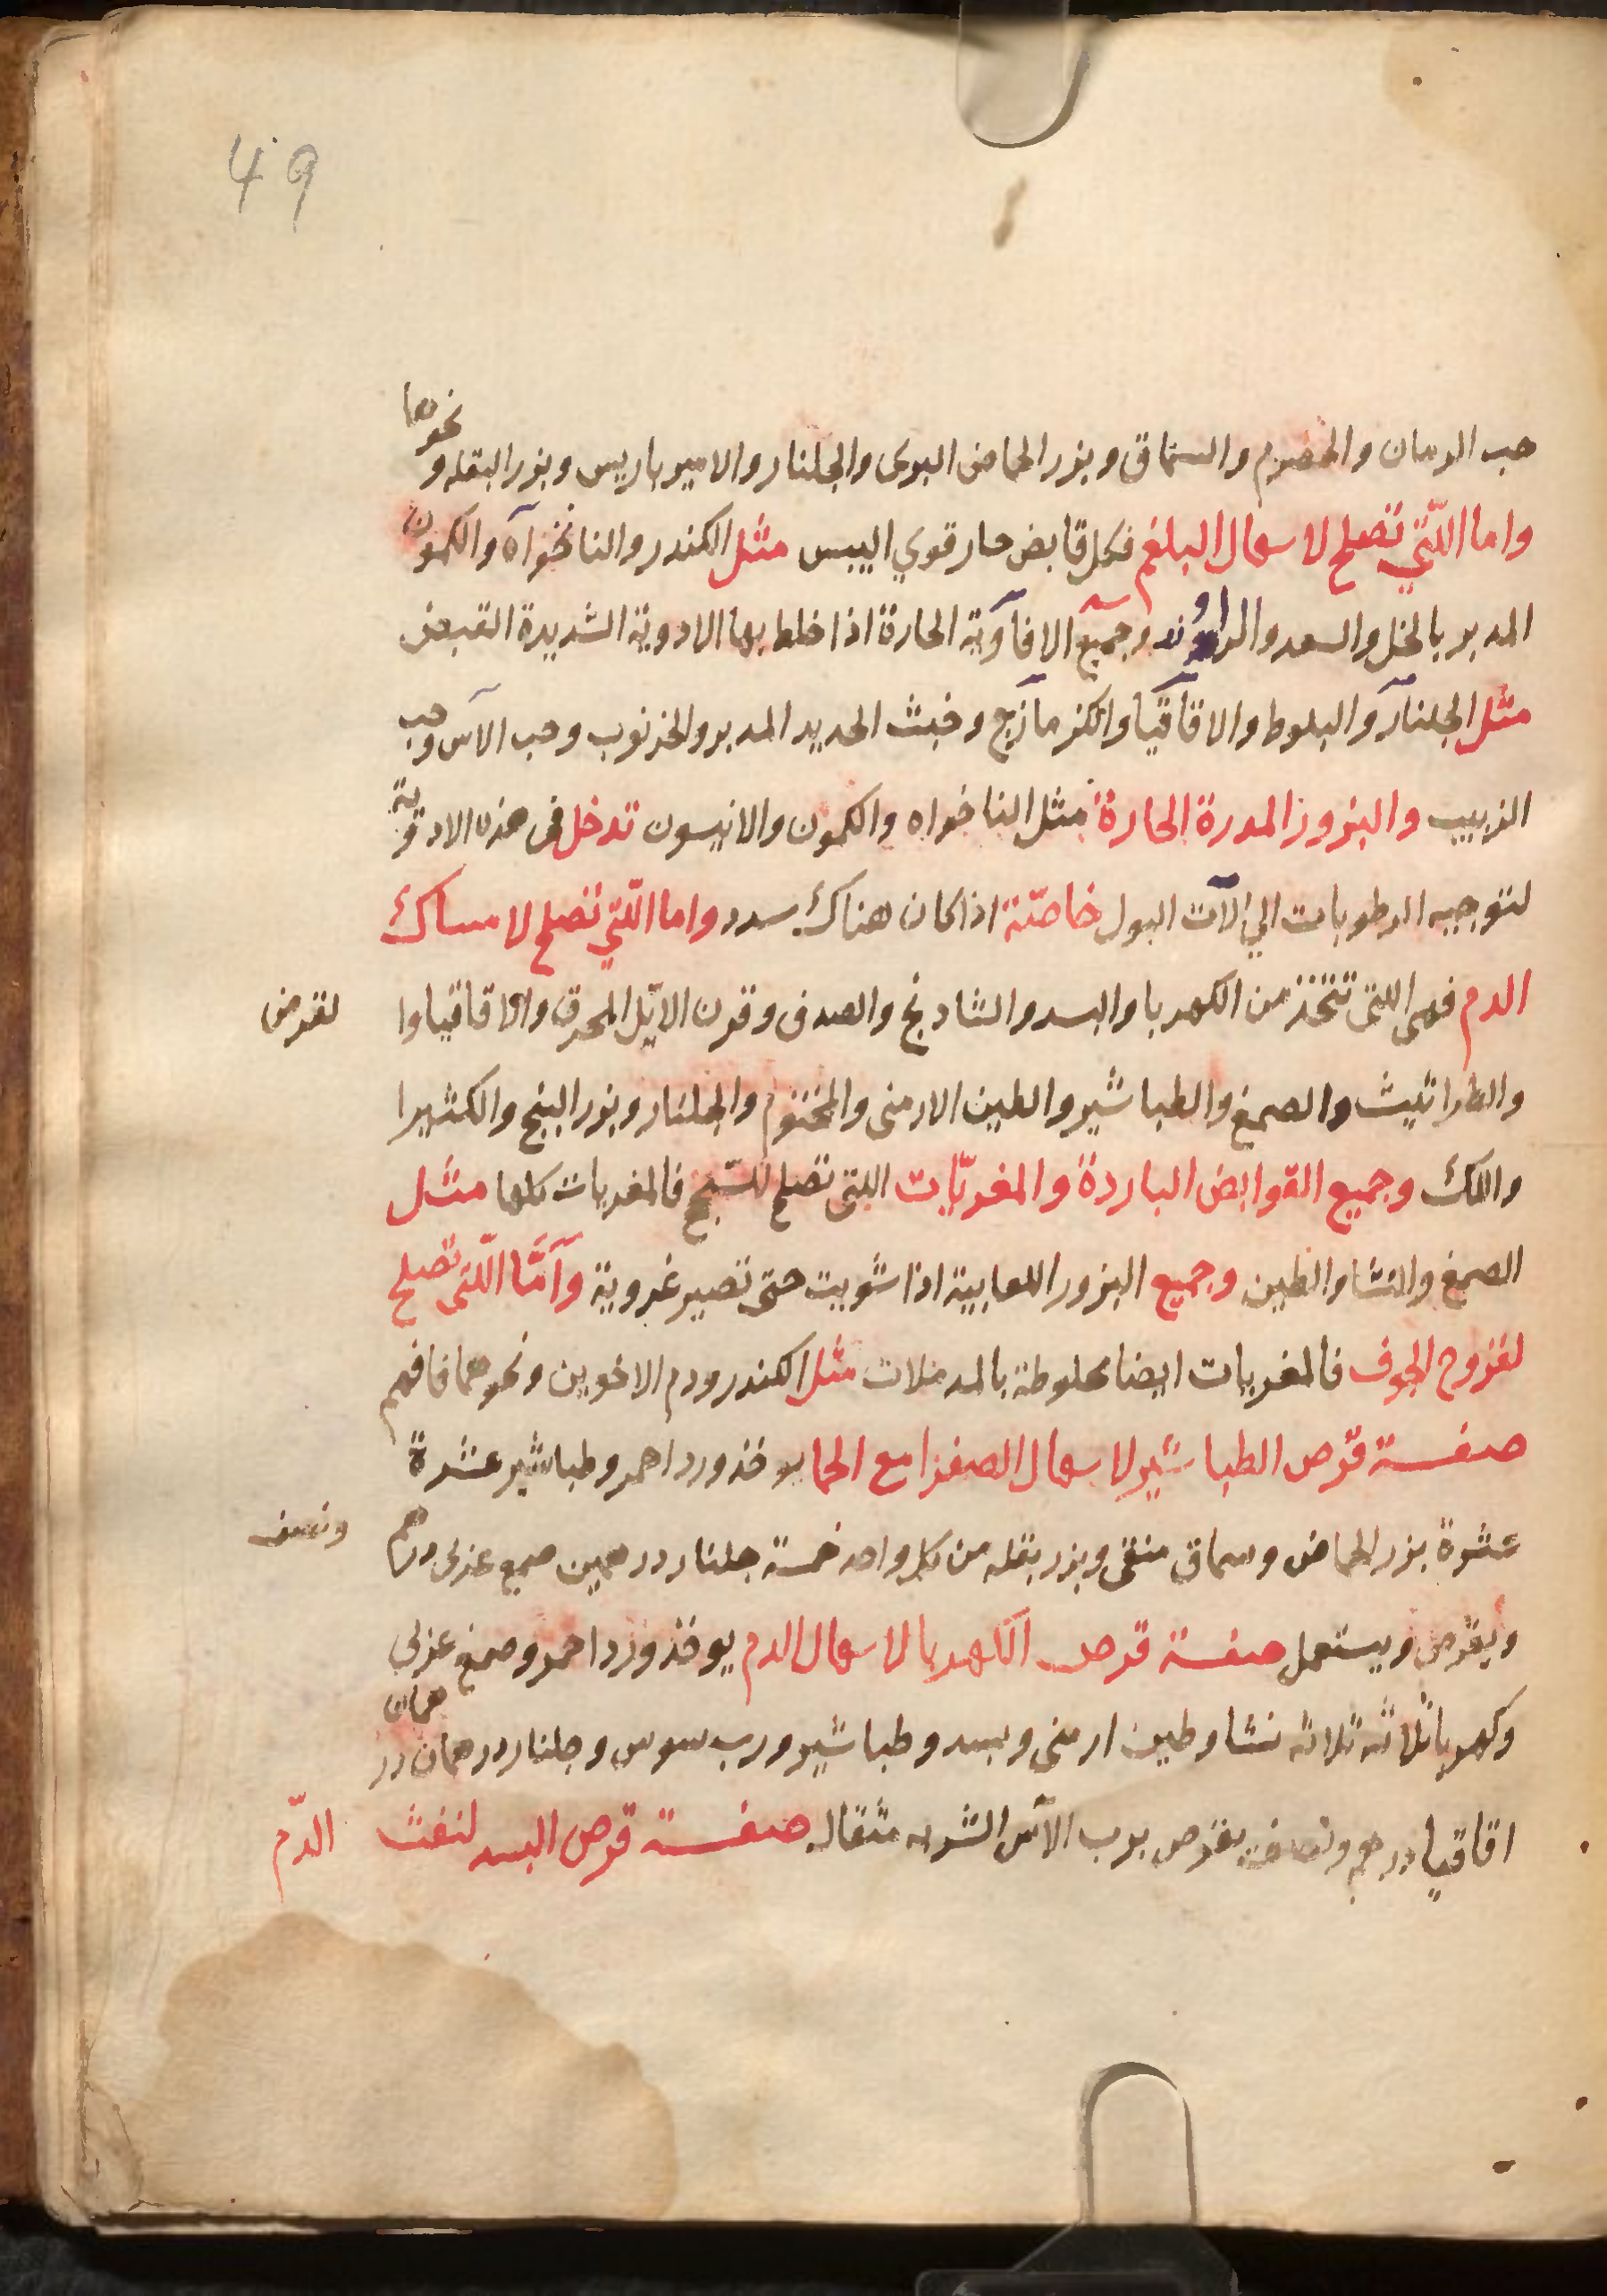 49
حب الرمان والحصرم والسماق وبزر الحماض البرى والجلنار والامير باريس وبزر البقله ونحوها
واما اللتي تصلح لاسهال البلغم فكل قابض حار قوي اليبس مثل الكندر والنانخواه والكمون
المدبر بالخل والسعد والراوند وجميع الافاوية الحارة اذا خلط بها الادوية الشديدة القبض
مثل الجلنار والبلوط والاقاقيا والكزمازج وخبث الحديد المدبر والخرنوب وحب الآس وحب
الزبيب والبزور المدرة الحارة مثل الناخواه والكمون والانيسون تدخل فى هذه الادوية
لتوجيه الرطوبات الي الآت البول خاصّة اذا كان هناك سدد واما اللّتي تصلح لامساك
الدم فهى اللتى تتخذ من الكهربا والبسد والشادنج والصدف وقرن الايّل المحرق والاقاقيا وا لقرض
والطراثيث والصمغ والطباشير والطين الارمنى والمختوم والجلنار وبزر البنج والكثيرا
واللك وجميع القوابض الباردة والمغريّات اللتى تصلح للسّحج فالمغريات كلها مثل
الصمغ والنشا والطين وجميع البزور اللعابية اذا شويت حتى تصير غروية وآمّا اللّتى تصلح
لقروح الجوف فالمغريات ايضا مخلوطة بالمدملات مثل الكندر ودم الاخوين ونحوهما فافهم
صفة قرص الطباشير لاسهال الصفرا مع الحما يوخذ ورد احمر وطباشير عشرة
عشرة بزر الحماض وسماق منقى وبزر بقله من كل واحد خمسة جلنار درهمين صمغ عربى درهم ونصف
ويقرص ويستعمل صفة قرص الكهربا لاسهال الدم يوخذ ورد احمر وصمغ عربي
وكهربا ثلاثه ثلاثه نشا وطين ارمنى وبسد وطباشير ورب سوس وجلنار درهمان درهمان
اقاقيا درهم ونصف يقرص برب الآس الشربه مثقال صفة قرص البسد لنفث الدّم